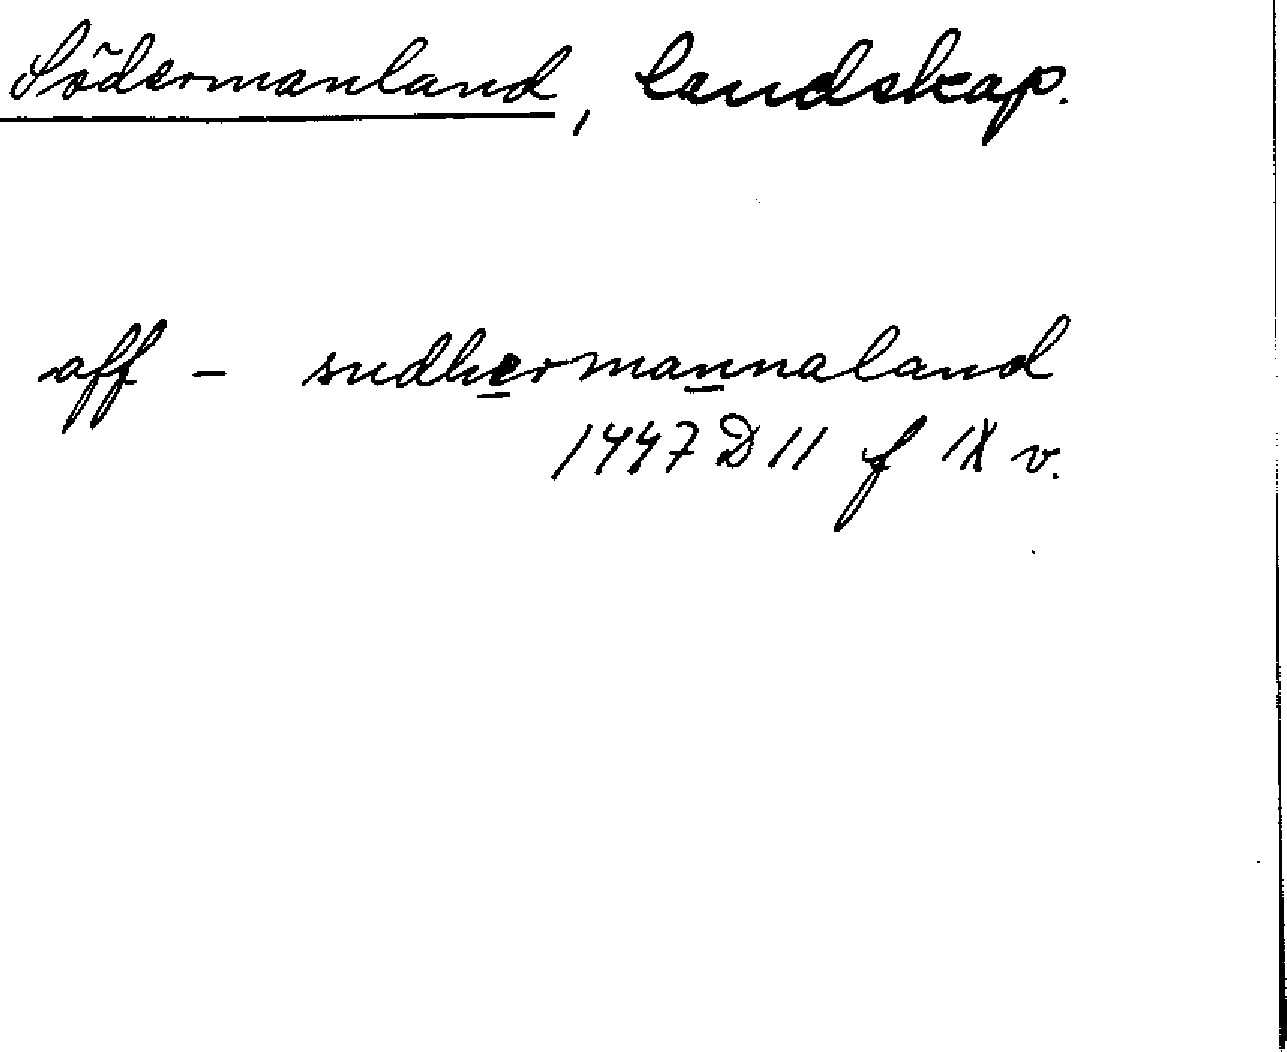 Södermanland, landskap.
aff - sudhermannaland
1447 D 11 f IX v.